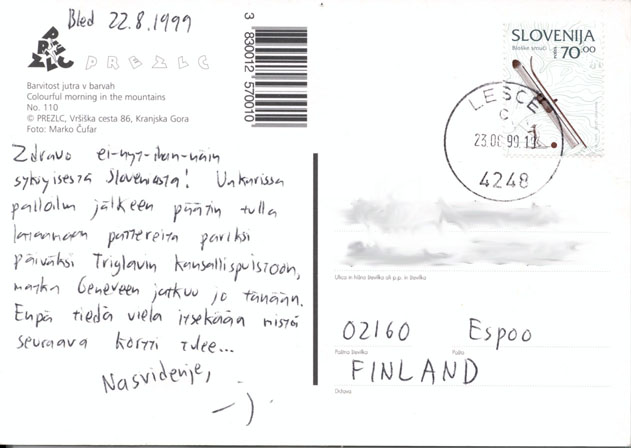 Bled 22.8.1999
PREZLC PREZLC
Barvitost jutra v barvah
Colourful morning in the mountains
No. 110
© PREZLC, Vršiška cesta 86, Kranjska Gora
Foto: Marko Čufar
3 830012 570010
SLOVENIJA
Bloške smuči 70.00
LESCE
23.08.99.19
4248
Zdravo ei-nyt-ihan-näin
syksyisestä Sloveniasta! Unkarissa
palloilun jälkeen päätin tulla
lataamaan pattereita pariksi
päiväksi Triglavin kansallispuistoon,
matka Geneveen jatkuu jo tänään.
Enpä tiedä vielä itsekään mistä
seuraava kortti tulee...
Nasvidenje,
-)
Ulica in hišna številka ali p.p. in številka
02160 Espoo
Poštna številka Pošta
FINLAND
Država